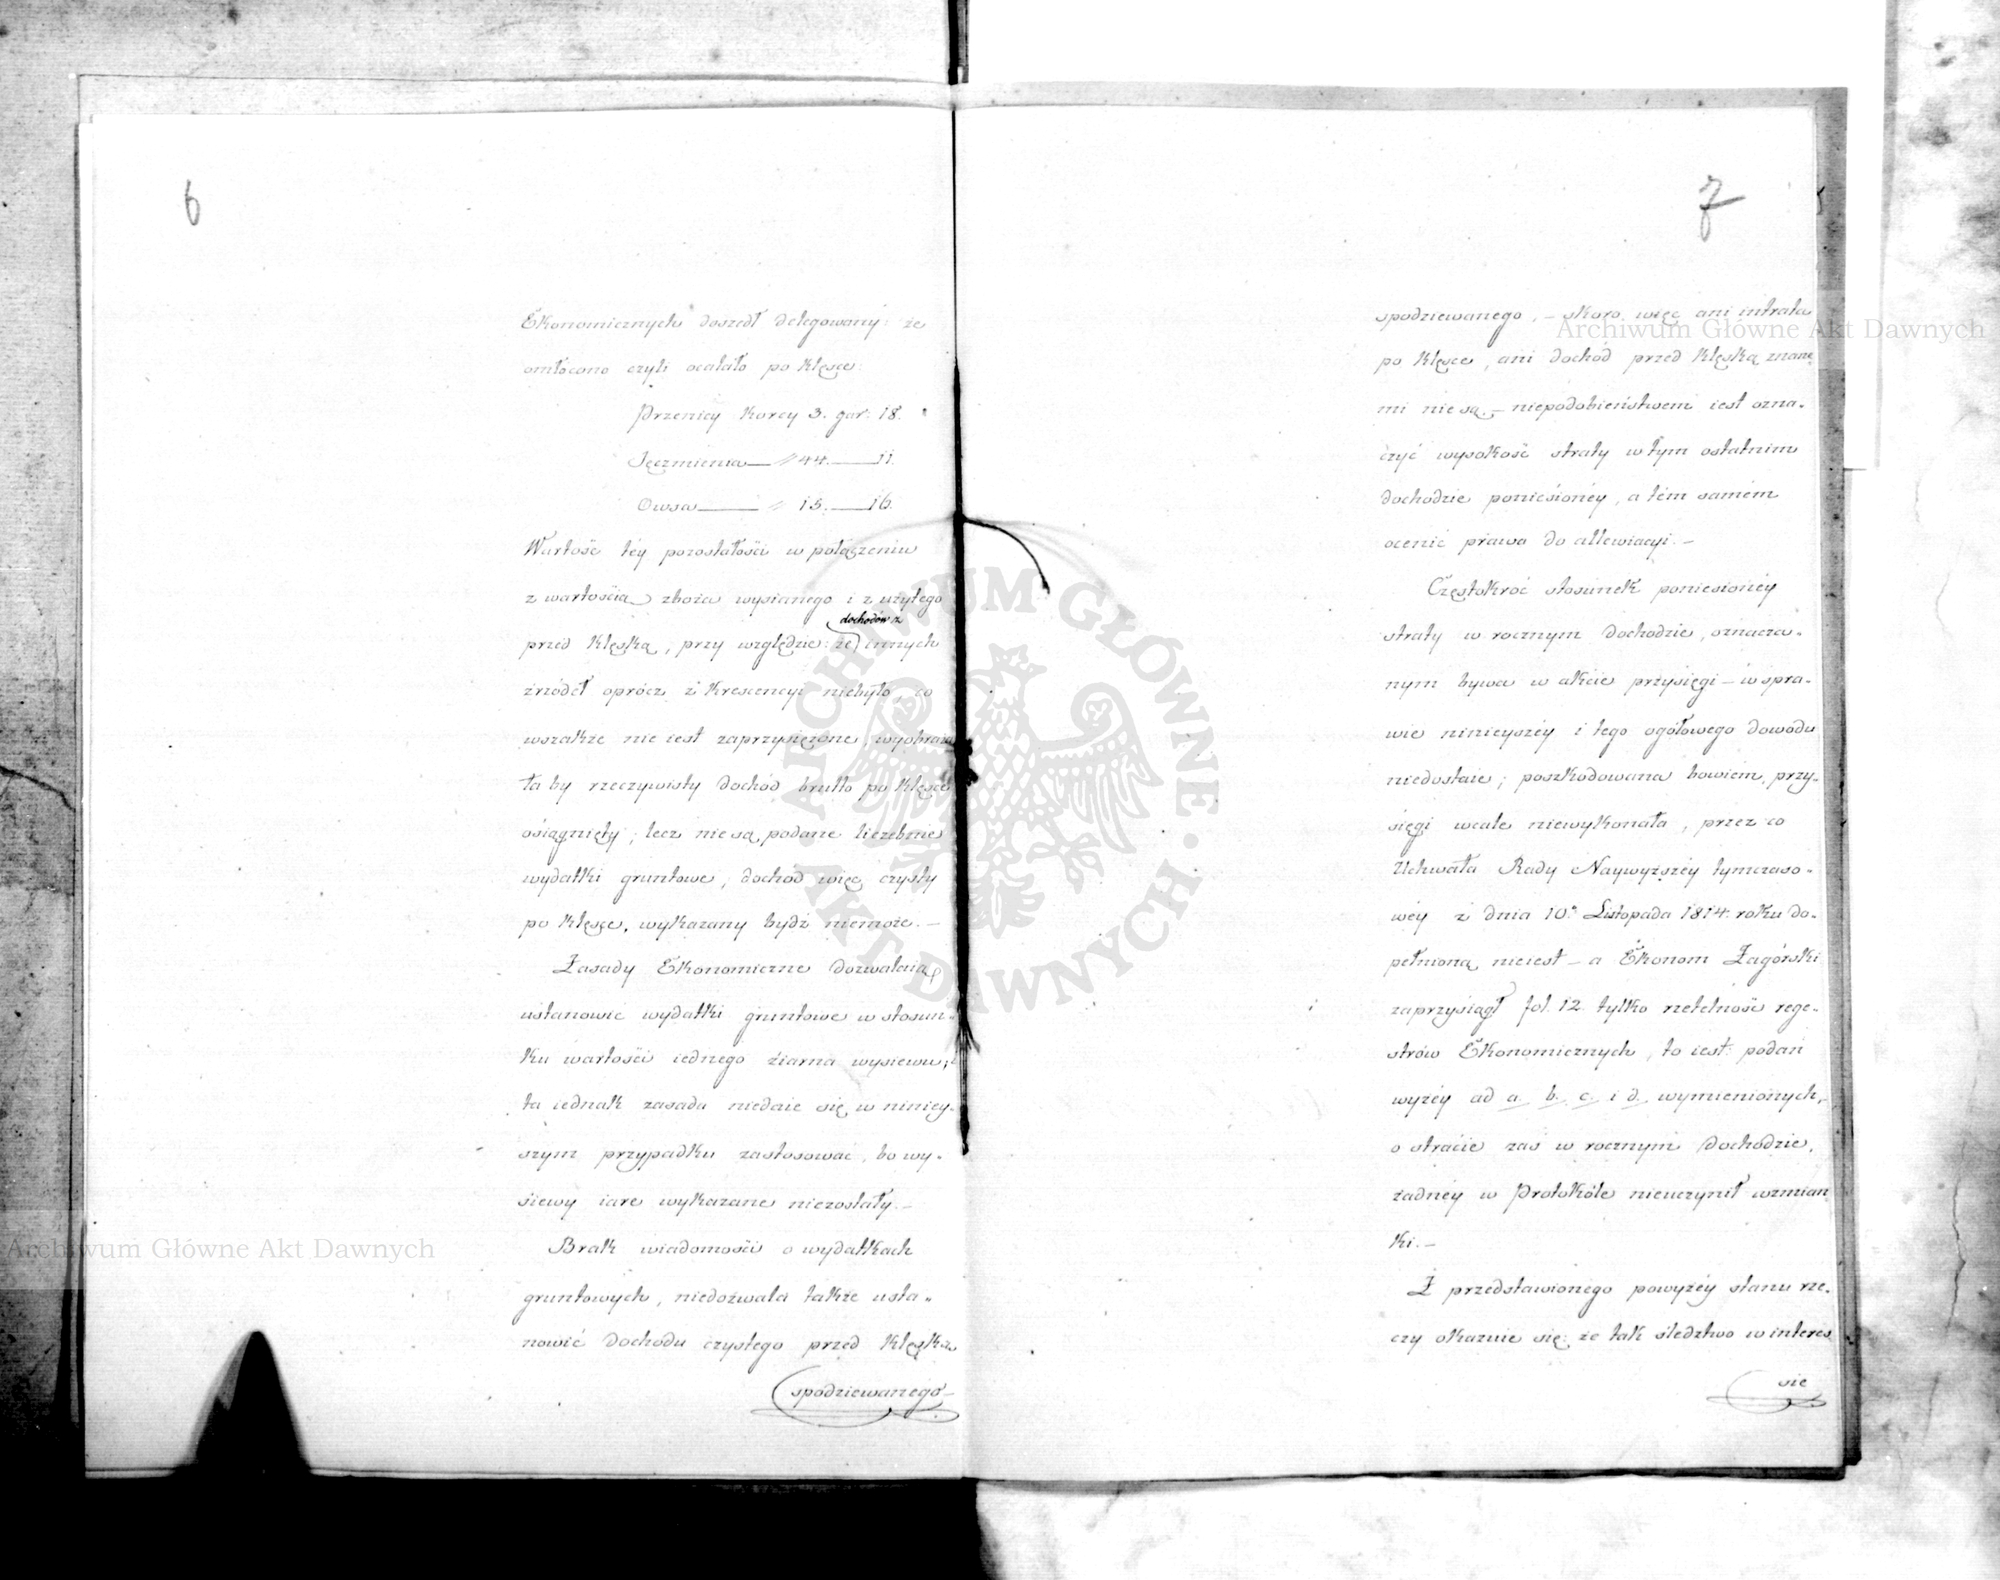 6
Ekonomicznych doszedł delegowany: że
omłócono czyli ocalało po klęsce:
Przenicy Korcy 3. gar: 18.
Jęczmienia — // 44. — 11.
Owsa — // 15. — 16.
Wartość téy pozostałości w połączeniu
z wartością zboża wysianego i z użytego
dochodów z
przed klęską, przy względzie: że innych
źródeł oprócz z krescencyi niebyło, co
wszakże nie iest zaprzysiężone, wyobraża
ła by rzeczywisty dochód brutto po klęsce
osiągnięty; lecz nie są podane liczebnie
wydatki gruntowe; dochód więc czysty
po klęsce, wykazany bydź niemoże. —
Zasady Ekonomiczne dozwalaią
ustanowić wydatki gruntowe w stosun„
ku wartości iednego ziarna wysiewu;
ta iednak zasada niedaie się w niniey„
szym przypadku zastosować, bo wy„
siewy iare wykazane niezostały. —
Brak wiadomości o wydatkach
gruntowych, niedozwala także usta„
nowić dochodu czystego przed klęską
spodziewanego —
7
spodziewanego, — skoro więc ani intrata
po klęsce, ani dochód przed klęską znane„
mi nie są. — niepodobieństwem iest ozna„
czyć wysokość straty w tym ostatnim
dochodzie poniesionéy, a tém samém
ocenić prawa do allewiacyi. —
Częstokroć stosunek poniesionéy
straty w rocznym dochodzie, oznaczo„
nym bywa w akcie przysięgi — w spra„
wie ninieyszéy i tego ogółowego dowodu
niedostaie; poszkodowana bowiem, przy„
sięgi wcale niewykonała, przez co
Uchwała Rady Naywyższéy tymczaso„
wéy z dnia 10.° Listopada 1814. roku do„
pełnioną nieiest — a Ekonom Zagórski
zaprzysiągł fol. 12. tylko rzetelność rege„
strów Ekonomicznych, to iest: podań
wyżéy ad a. b. c. i d. wymienionych,
o stracie zaś w rocznym dochodzie,
żadnéy w Protokóle nieuczynił wzmian
ki. —
Z przedstawionego powyżéy stanu rze„
czy okazuie się: że tak śledztwo w interes
sie
Archiwum Główne Akt Dawnych
Archiwum Główne Akt Dawnych
ARCHIWUM GŁÓWNE · AKT DAWNYCH ·